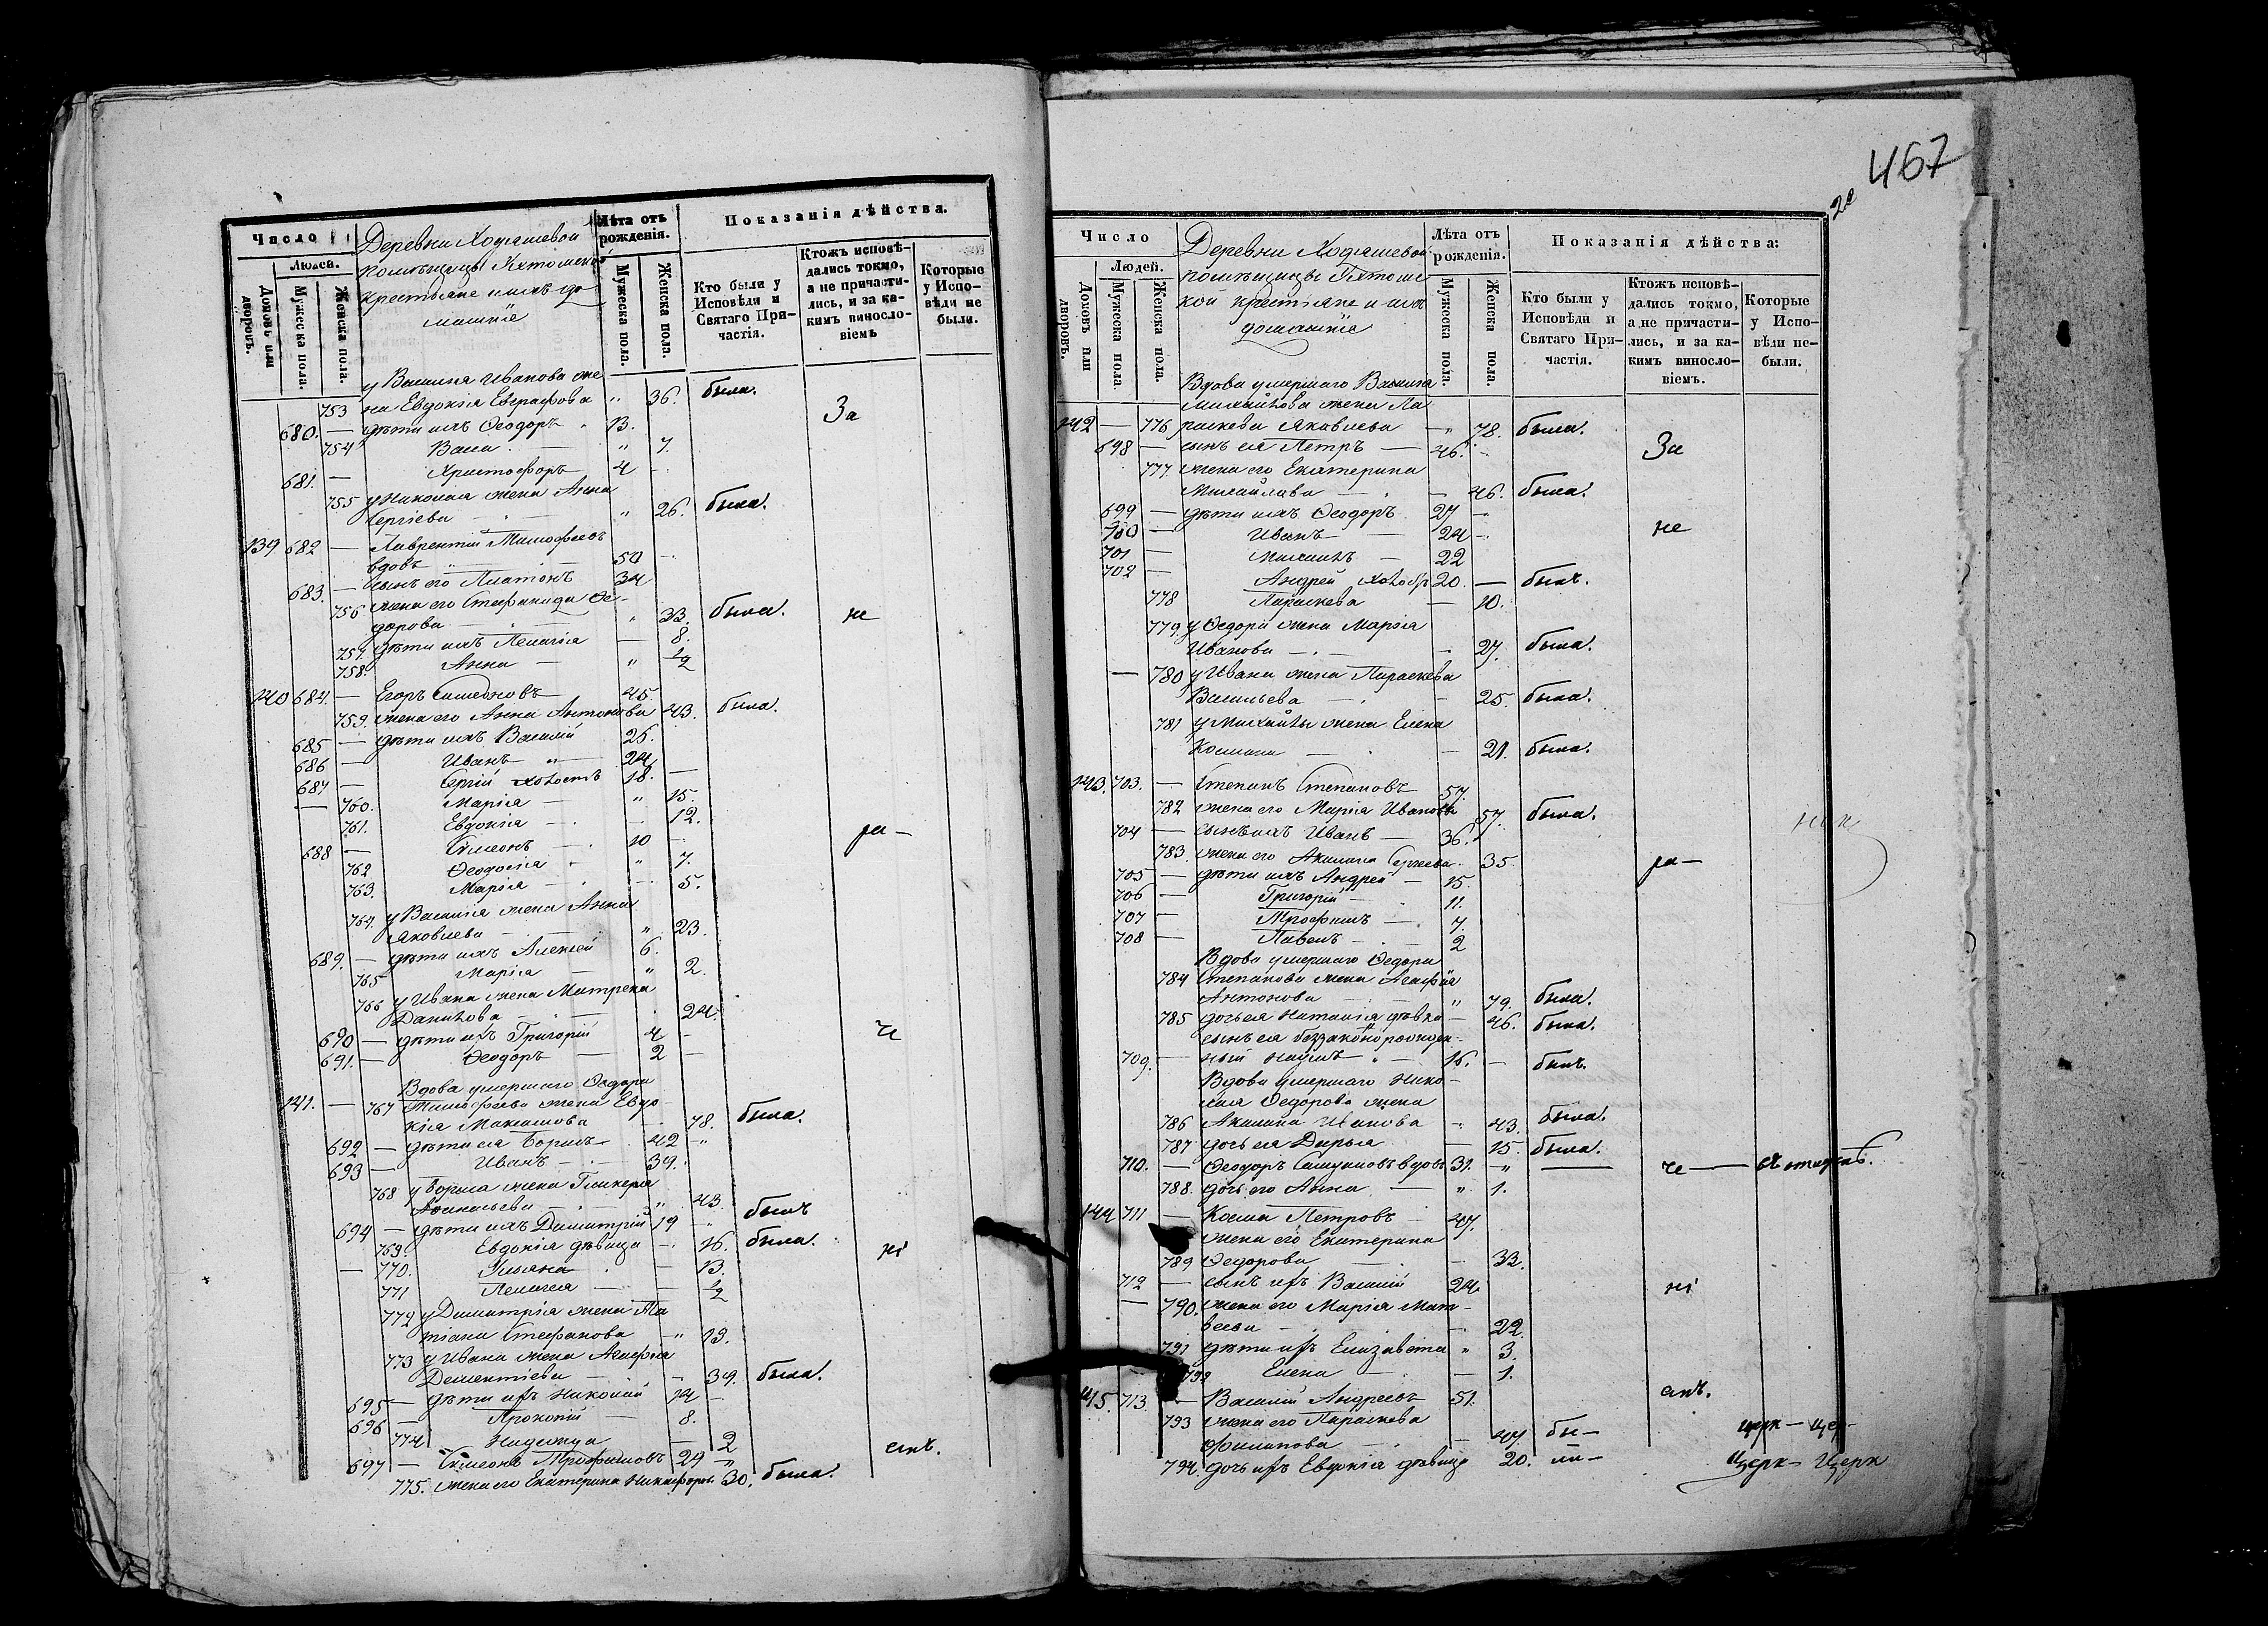 Число
Людей.
Домовъ или дворовъ.
Мужеска пола.
Женска пола.
Деревни Ходяшевой
помѣщицы
крестьяне и ихъ до-
машніе
Лѣта отъ рожденія.
Мужеска пола.
Женска пола.
Показанія дѣйства.
Кто были у Исповѣди и Святаго При-частія.
Ктожъ исповѣ-дались токмо, а не причасти-лись, и за ка-кимъ винослo-віемъ
Которые у Испо-вѣди не были.
у Василія Иванова же
753 на Евдокія Евграфова " 36. была.
680. — дѣти ихъ Ѳеодоръ 13. За
754 Васса " 7.
681. — Христофоръ 4
755 у Николая жена Анна
Сергіева " 26. была.
139 682 — Лаврентій Тимоѳеевъ
вдовъ 50
683. — сынъ его Платонъ 34
756 жена его Стефанида Ѳе-
дорова " 33. была. не
757. дѣти ихъ Пелагія 8.
758. Анна " 1/2
140 684. — Егоръ Симеоновъ 45
759. жена его Анна Антонова 43. была.
685 — дѣти ихъ Василій 25.
686 — Иванъ " 24
687 — Сергій холостъ 18. —
— 760. Марія " 15.
761. Евдокія 12.
688 — Симеонъ 10 ра—
762 Ѳеодосія " 7.
763. Марія 5.
764. у Василія жена Анна
Яковлева " 23.
689. — дѣти ихъ Алексей 6.
765 Марія " 2.
766 у Ивана жена Матрена
Данилова 24.
690 — дѣти ихъ Григорій 4 — че
691. — Ѳеодоръ 2 —
Вдова умершаго Ѳедора
141. — 767 Тимоѳеева жена Евдо-
кія Максимова 78. была.
692 — дѣти ея Борисъ 42 "
693 — Иванъ 39.
768 у Бориса жена Гликерія
" 43.
694 — дѣти ихъ Димитрій 19 " былъ
769. Евдокія дѣвица 16. была. ні
— 770. Ульяна 13.
771 Пелагея 1/2
772 у Димитрія жена Та
тіана Стефанова " 19.
773 у Ивана жена Агафія
Дементіева 39. была.
695 — дѣти ихъ Николай 14 —
696 — Прокопій 8.
774 Надежда — 2 емъ.
697 — Симеонъ Трофимовъ 29 "
775. жена его Екатерина Никифоров. 30. была.
467
Число
Людей.
Домовъ или дворовъ.
Мужеска пола.
Женска пола.
Деревни Ходяшевой
помѣщицы
кой крестьяне и ихъ
домашніе
Лѣта отъ рожденія.
Мужеска пола.
Женска пола.
Показанія дѣйства:
Кто были у Исповѣди и Святаго При-частія.
Ктожъ исповѣ-дались токмо, а не причасти-лись, и за ка-кимъ винослo-віемъ.
Которые у Испо-вѣди не-были.
Вдова умершаго Василія
Михайлова жена Па
142 — 776 раскева Яковлева — 78. была.
698 — сынъ ея Петръ — 46. За
777. жена его Екатерина
Михайлова — 46. была.
699 — дѣти ихъ Ѳеодоръ 27 —
700 — Иванъ 24 — не
701 — Михаилъ — 22
702 — Андрей холостъ 20. — былъ.
778 Параскева — 10.
779. у Ѳедора жена Марія
Иванова — 27. была.
— 780 у Ивана жена Параскева
Васильева — 25. была.
781 у Михайлы жена Елена
Космина — 21. была.
143. 703. — Степанъ Степановъ 57.
782 жена его Марія Иванова 57. была.
704 — сынъ ихъ Иванъ — 36.
783. жена его Акилина Сергеева 35. ра—
705 — дѣти ихъ Андрей — 15.
706 — Григорій 11.
707 — Трофимъ 7.
708 — Павелъ 2
Вдова умершаго Ѳедора
784 Степанова жена Агафія
Антонова " 79. была.
785 дочь ея Наталія дѣвка — 46. была.
сынъ ея беззаконорожден-
709. — ный Наумъ 16. — былъ.
Вдова умершаго Нико-
лая Ѳедорова жена
786 Акилина Иванова 43. была.
787 дочь ея Дарья — 15. была.
710. — Ѳеодоръ вдовъ 31. " — че —
788. дочь его Анна — " 1.
144 711 — Косма Петровъ 47.
жена его Екатерина
789 Ѳедорова 32.
712 — сынъ ихъ Василій 24 ні
— 790. жена его Марія Мат-
веева 22.
791 дѣти ихъ Елизавета " 3.
792 Елена — 1.
145. 713. — Василій Андреевъ 51. емъ.
793 жена его Параскева
Филипова — 47. бы—
794. дочь ихъ Евдокія дѣвица 20. ли—
церк — цер-
Церк— Церк